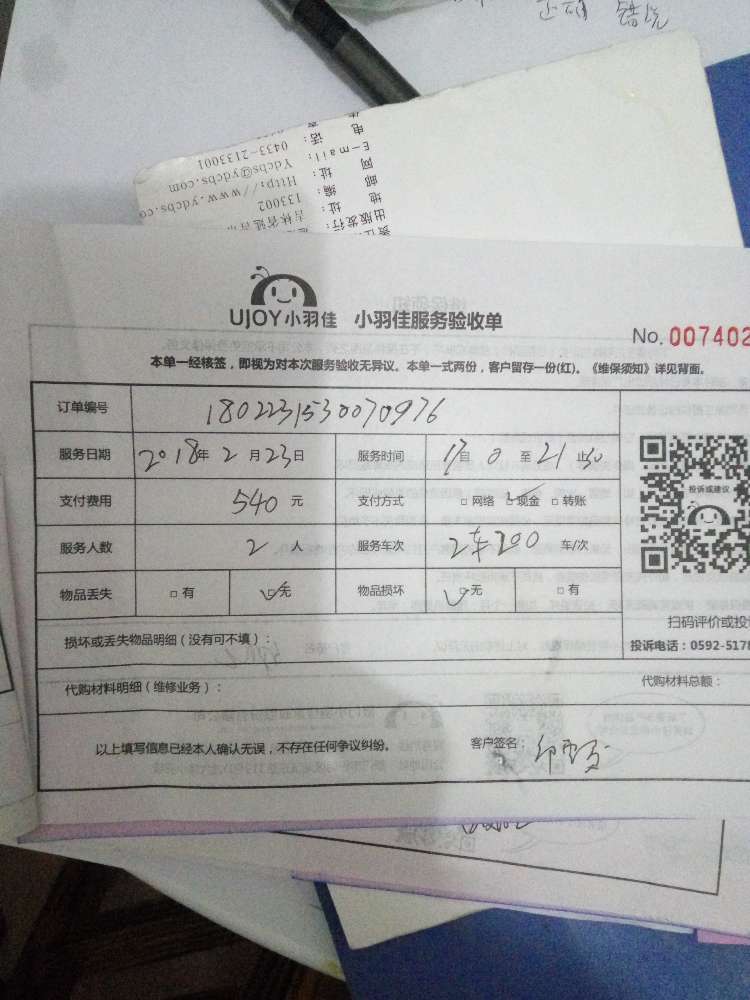 错觉
电 话：0433-2133001
E-mail：Ydcbs@ydcbs.com
网 址：Http://www.ydcbs.co
邮 编：133002
地 址：吉林省延吉市
出版发行：
UJOY小羽佳 小羽佳服务验收单
No. 007402
本单一经核签，即视为对本次服务验收无异议。本单一式两份，客户留存一份(红)。《维保须知》详见背面。
订单编号 1802231530070976
服务日期 2018年 2月23日 服务时间 17自0至21止30
支付费用 540元 支付方式 □网络 ☑现金 □转账
服务人数 2人 服务车次 2车200 车/次
物品丢失 □有 ☑无 物品损坏 ☑无 □有
投诉或建议
扫码评价或投诉
损坏或丢失物品明细（没有可不填）：
投诉电话：0592-5178
代购材料明细（维修业务）： 代购材料总额：
以上填写信息已经本人确认无误，不存在任何争议纠纷。 客户签名：